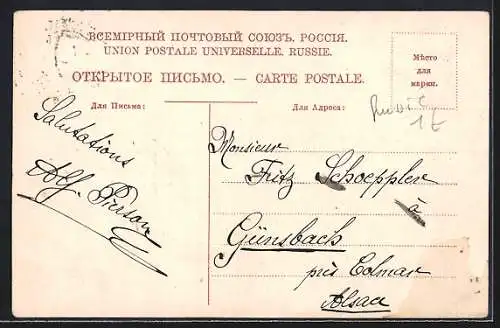 ВСЕМІРНЫЙ ПОЧТОВЫЙ СОЮЗЪ. РОССІЯ.
UNION POSTALE UNIVERSELLE. RUSSIE.
ОТКРЫТОЕ ПИСЬМО. — CARTE POSTALE.
Мѣсто
для
марки.
Для Письма:
Для Адреса:
Salutations
Alf. Pierson
Monsieur
Fritz Schoeppler
à
Günsbach
près Colmar
Alsace